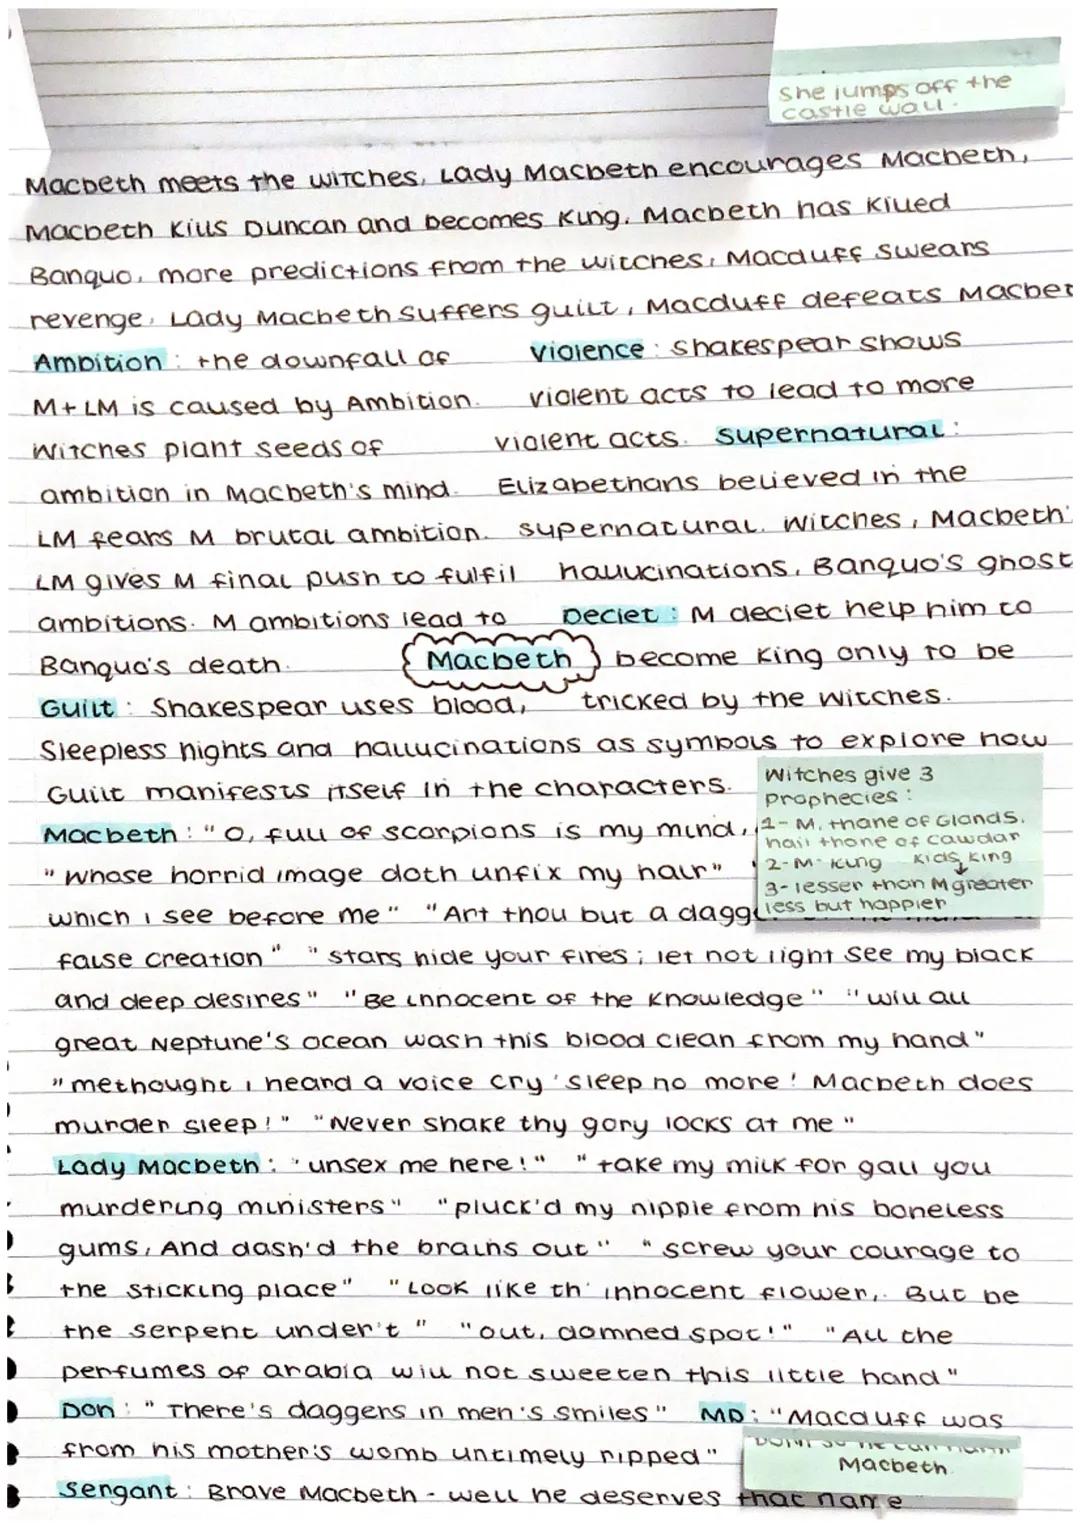 She jumps off the
castle wall.
Macbeth meets the witches, Lady Macbeth encourages Macbeth,
Macbeth kills Duncan and becomes King. Macbeth has killed
Banquo, more predictions from the witches, Macduff swears
revenge, Lady Macbeth suffers guilt, Macduff defeats Macbet
Ambition: the downfall of
M+LM is caused by Ambition.
Witches plant seeds of
ambition in Macbeth's mind.
LM fears M brutal ambition.
LM gives M final push to fulfil
ambitions. M ambitions lead to
Banquo's death.
Violence: Shakespear shows
violent acts to lead to more
violent acts. Supernatural:
Elizabethans believed in the
supernatural. Witches, Macbeth'
hallucinations, Banquo's ghost
Deciet: M deciet help him to
become King only to be
tricked by the Witches.
Macbeth
Guilt: Shakespear uses blood,
Sleepless nights and hallucinations as symbols to explore how
Guilt manifests itself in the characters.
Witches give 3
prophecies:
1- M. thane of Glands.
hail thane of cawdar
2- M- King Kids King
3- lesser than M greater
less but happier
Macbeth: "O, full of scorpions is my mind,
"Whose horrid image doth unfix my hair"
which i see before me" "Art thou but a dagg
false creation" "stars hide your fires; let not light see my black
and deep desires" "Be innocent of the knowledge" "will all
great Neptune's ocean wash this blood clean from my hand"
"methought i heard a voice cry 'sleep no more! Macbeth does
murder sleep!" "Never shake thy gory locks at me"
Lady Macbeth: "unsex me here!" "take my milk for gall you
murdering ministers" "pluck'd my nipple from his boneless
gums, And dash'd the brains out" "screw your courage to
the sticking place" "Look like th' innocent flower, But be
the serpent under't" "out, damned spot!" "All the
perfumes of arabia will not sweeten this little hand"
Don: "There's daggers in men's smiles" MD: "Macduff was
from his mother's womb untimely ripped"
Macbeth.
Sengant: Brave Macbeth - well he deserves that name